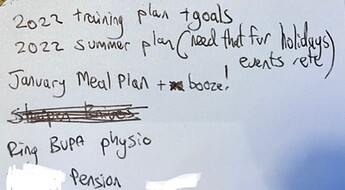 2022 training plan + goals
2022 summer plan (need that for holidays
events etc)
January Meal Plan + booze!
Ring BUPA physio
Pension